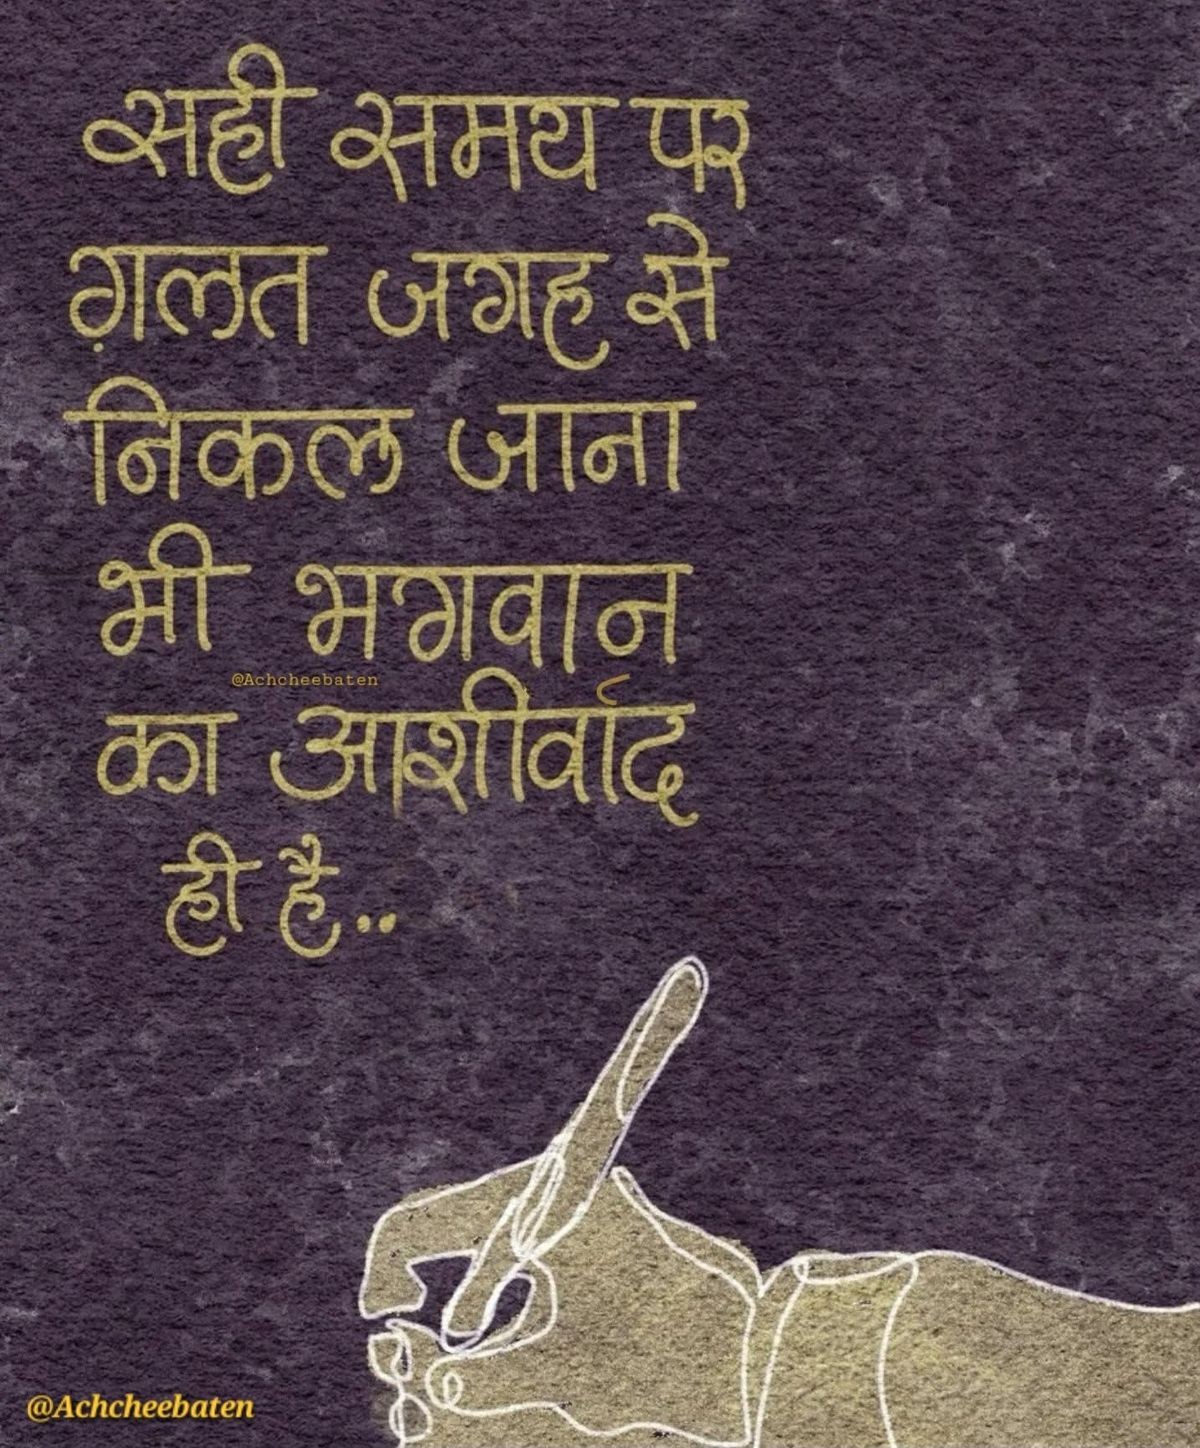 सही समय पर
ग़लत जगह से
निकल जाना
भी भगवान
@Achcheebaten
का आशीर्वाद
ही है..
@Achcheebaten